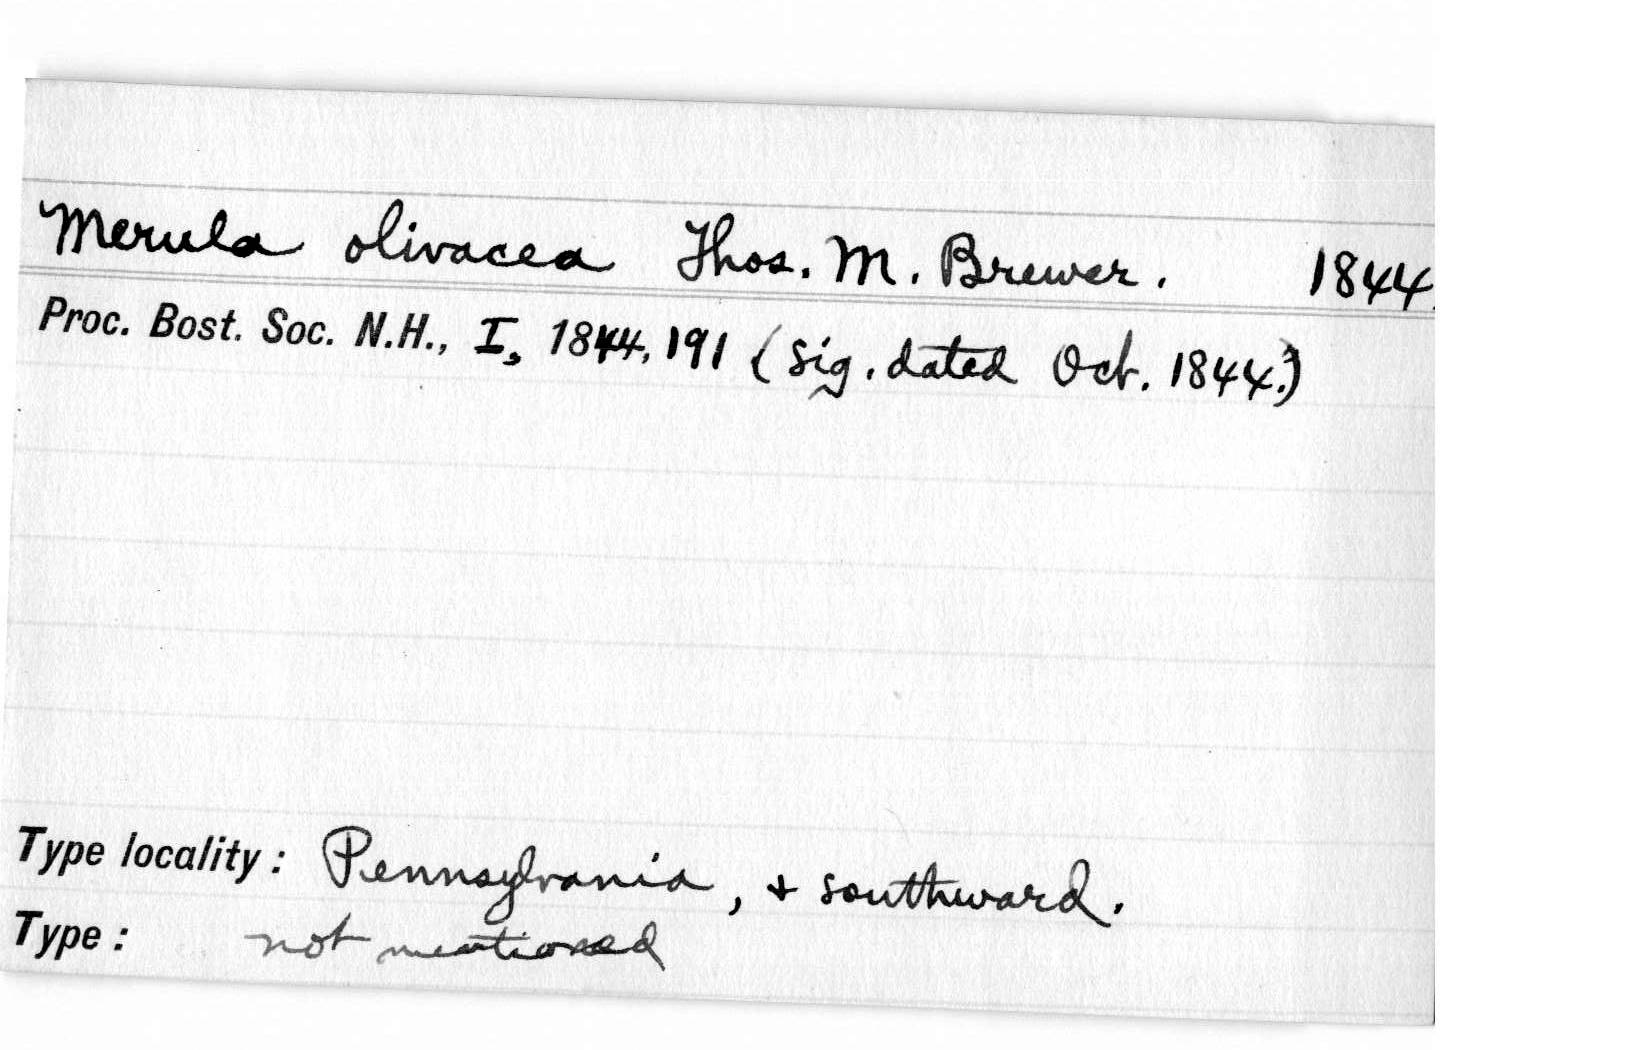 Merula olivacea Thos. M. Brewer. 1844.
Proc. Bost. Soc. N.H., I, 1844, 191 (Sig. dated Oct. 1844.)
Type locality: Pennsylvania, + southward.
Type: not mentioned